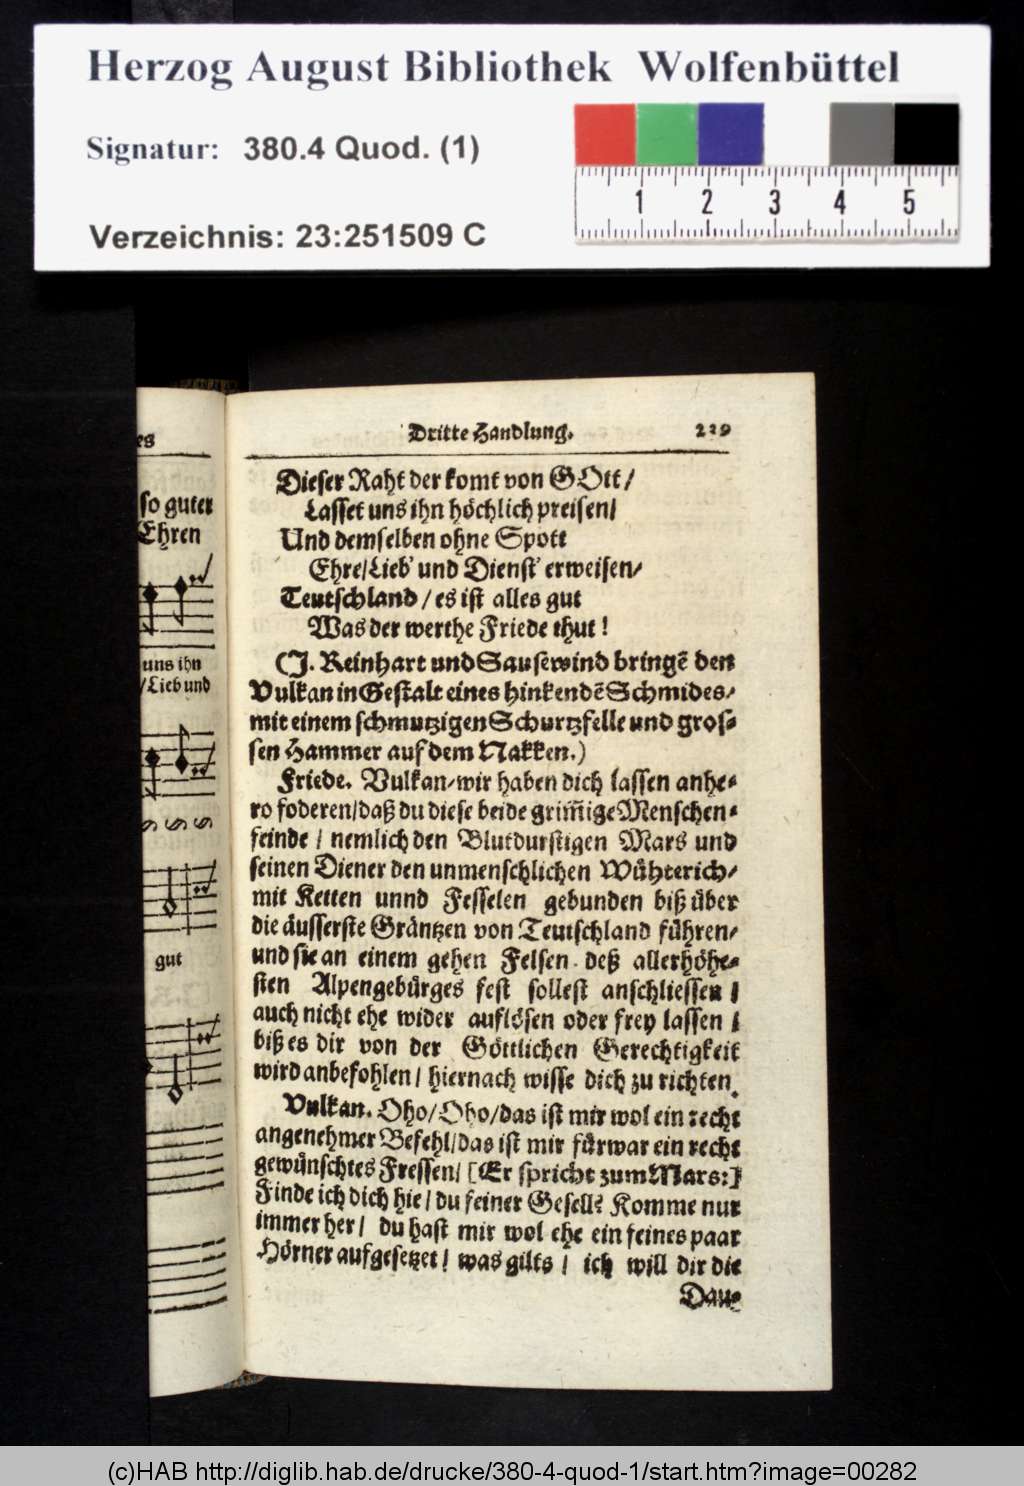 Herzog August Bibliothek Wolfenbüttel
Signatur: 380.4 Quod. (1)
Verzeichnis: 23:251509 C
1 2 3 4 5
es
so guter
Ehren
uns ihn
/Lieb und
gut
Dritte Handlung. 229
Dieser Raht der komt von GOtt/
Lasset uns ihn höchlich preisen/
Und demselben ohne Spott
Ehre/Lieb' und Dienst' erweisen/
Teutschland/es ist alles gut
Was der werthe Friede thut!
(J. Reinhart und Sausewind bringē den
Vulkan in Gestalt eines hinkendē Schmides/
mit einem schmutzigen Schurtzfelle und gros-
sen Hammer auf dem Nakken.)
Friede. Vulkan/wir haben dich lassen anhe-
ro foderen/daß du diese beide grim̃ige Menschen-
feinde/ nemlich den Blutdurstigen Mars und
seinen Diener den unmenschlichen Wühterich/
mit Ketten unnd Fesselen gebunden biß über
die äusserste Gräntzen von Teutschland führen/
und sie an einem gehen Felsen deß allerhöhe-
sten Alpengebürges fest sollest anschliessen/
auch nicht ehe wider auflösen oder frey lassen/
biß es dir von der Göttlichen Gerechtigkeit
wird anbefohlen/ hiernach wisse dich zu richten.
Vulkan. Oho/Oho/das ist mir wol ein recht
angenehmer Befehl/das ist mir fürwar ein recht
gewünschtes Fressen/ [Er spricht zum Mars:]
Finde ich dich hie/ du feiner Gesell? Komme nur
immer her/ du hast mir wol ehe ein feines paar
Hörner aufgesetzet/ was gilts/ ich will dir die
Dau-
(c)HAB http://diglib.hab.de/drucke/380-4-quod-1/start.htm?image=00282